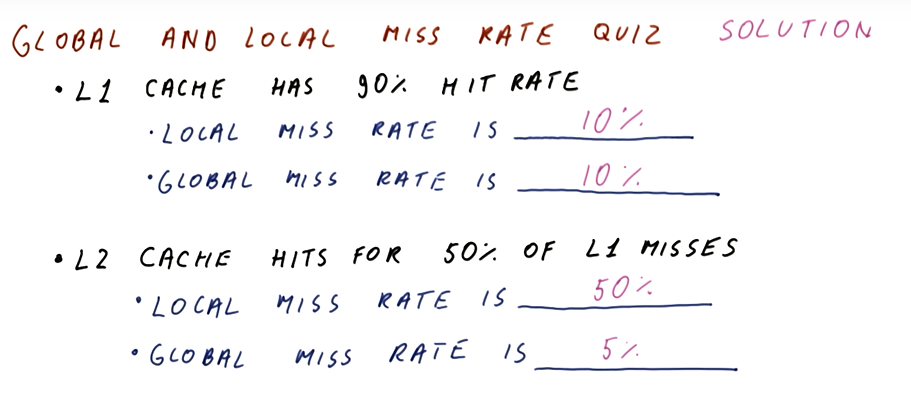 GLOBAL AND LOCAL MISS RATE QUIZ SOLUTION
• L1 CACHE HAS 90% HIT RATE
• LOCAL MISS RATE IS 10%
• GLOBAL MISS RATE IS 10%
• L2 CACHE HITS FOR 50% OF L1 MISSES
• LOCAL MISS RATE IS 50%
• GLOBAL MISS RATE IS 5%